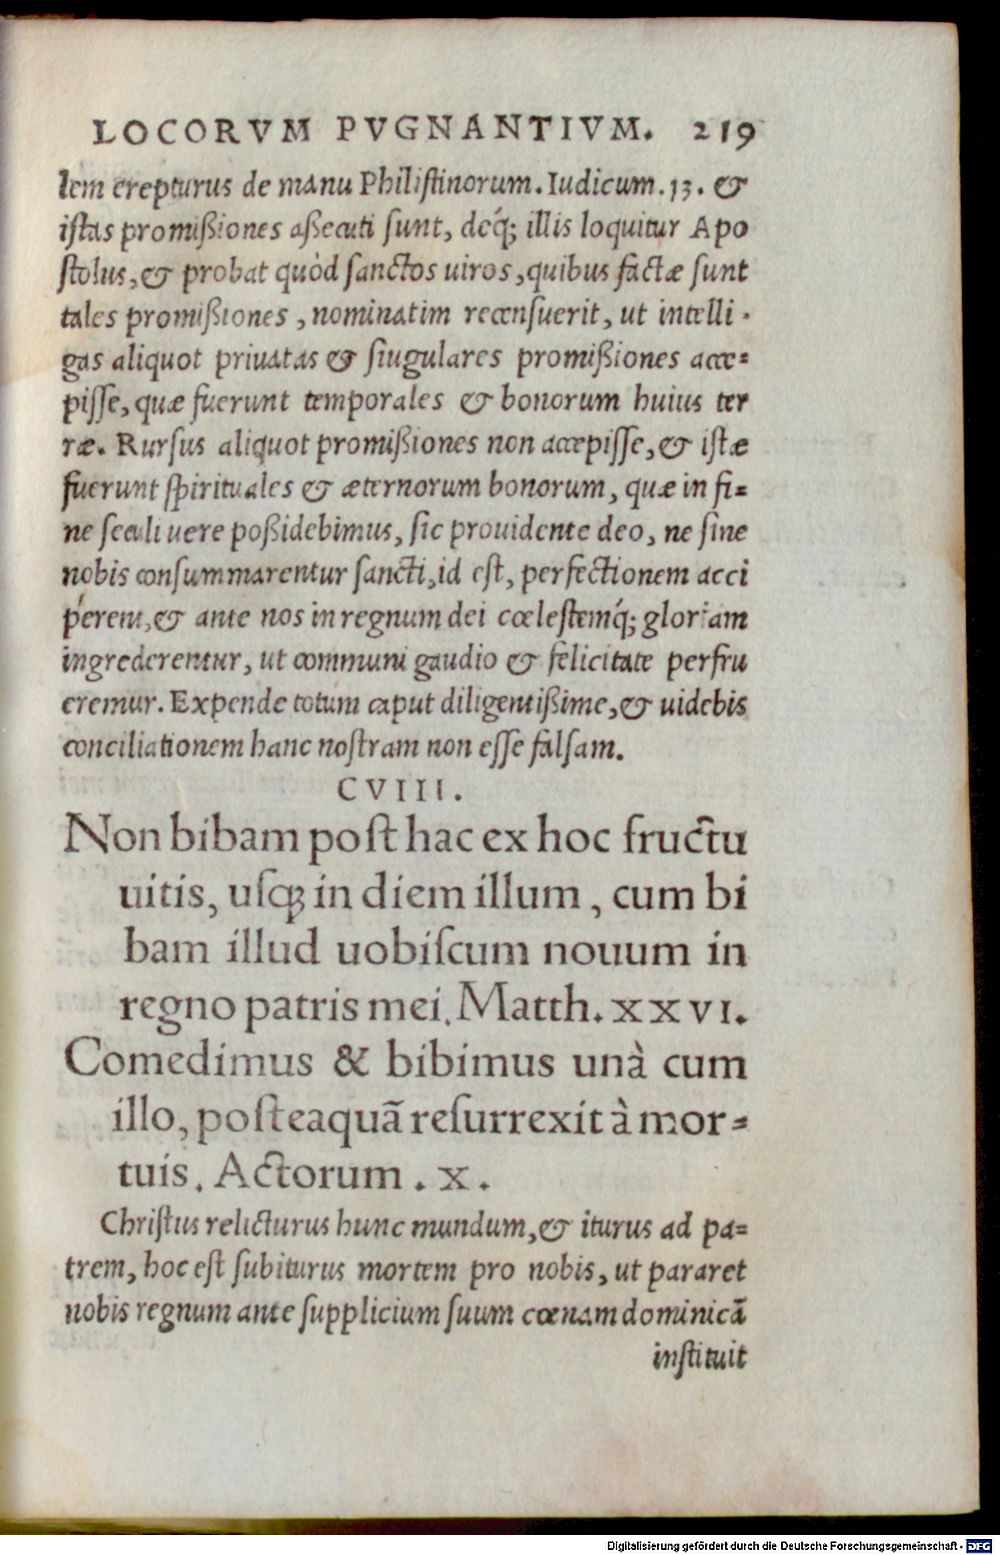 LOCORVM PVGNANTIVM. 219
lem erepturus de manu Philistinorum. Iudicum. 13. &
istas promißiones aßecuti sunt, deq́; illis loquitur Apo
stolus, & probat quòd sanctos uiros, quibus factæ sunt
tales promißiones, nominatim recensuerit, ut intelli-
gas aliquot priuatas & siugulares promißiones acce-
pisse, quæ fuerunt temporales & bonorum huius ter
ræ. Rursus aliquot promißiones non accepisse, & istæ
fuerunt spirituales & æternorum bonorum, quæ in fi-
ne seculi uere poßidebimus, sic prouidente deo, ne sine
nobis consummarentur sancti, id est, perfectionem acci
perent, & ante nos in regnum dei cœlestemq́; gloriam
ingrederentur, ut communi gaudio & felicitate perfru
eremur. Expende totum caput diligentißime, & uidebis
conciliationem hanc nostram non esse falsam.
CVIII.
Non bibam post hac ex hoc fructu
uitis, usq; in diem illum, cum bi
bam illud uobiscum nouum in
regno patris mei. Matth. XXVI.
Comedimus & bibimus unà cum
illo, posteaquã resurrexit à mor-
tuis. Actorum. X.
Christus relicturus hunc mundum, & iturus ad pa-
trem, hoc est subiturus mortem pro nobis, ut pararet
nobis regnum ante supplicium suum cœnam dominicã
instituit
Digitalisierung gefördert durch die Deutsche Forschungsgemeinschaft - DFG